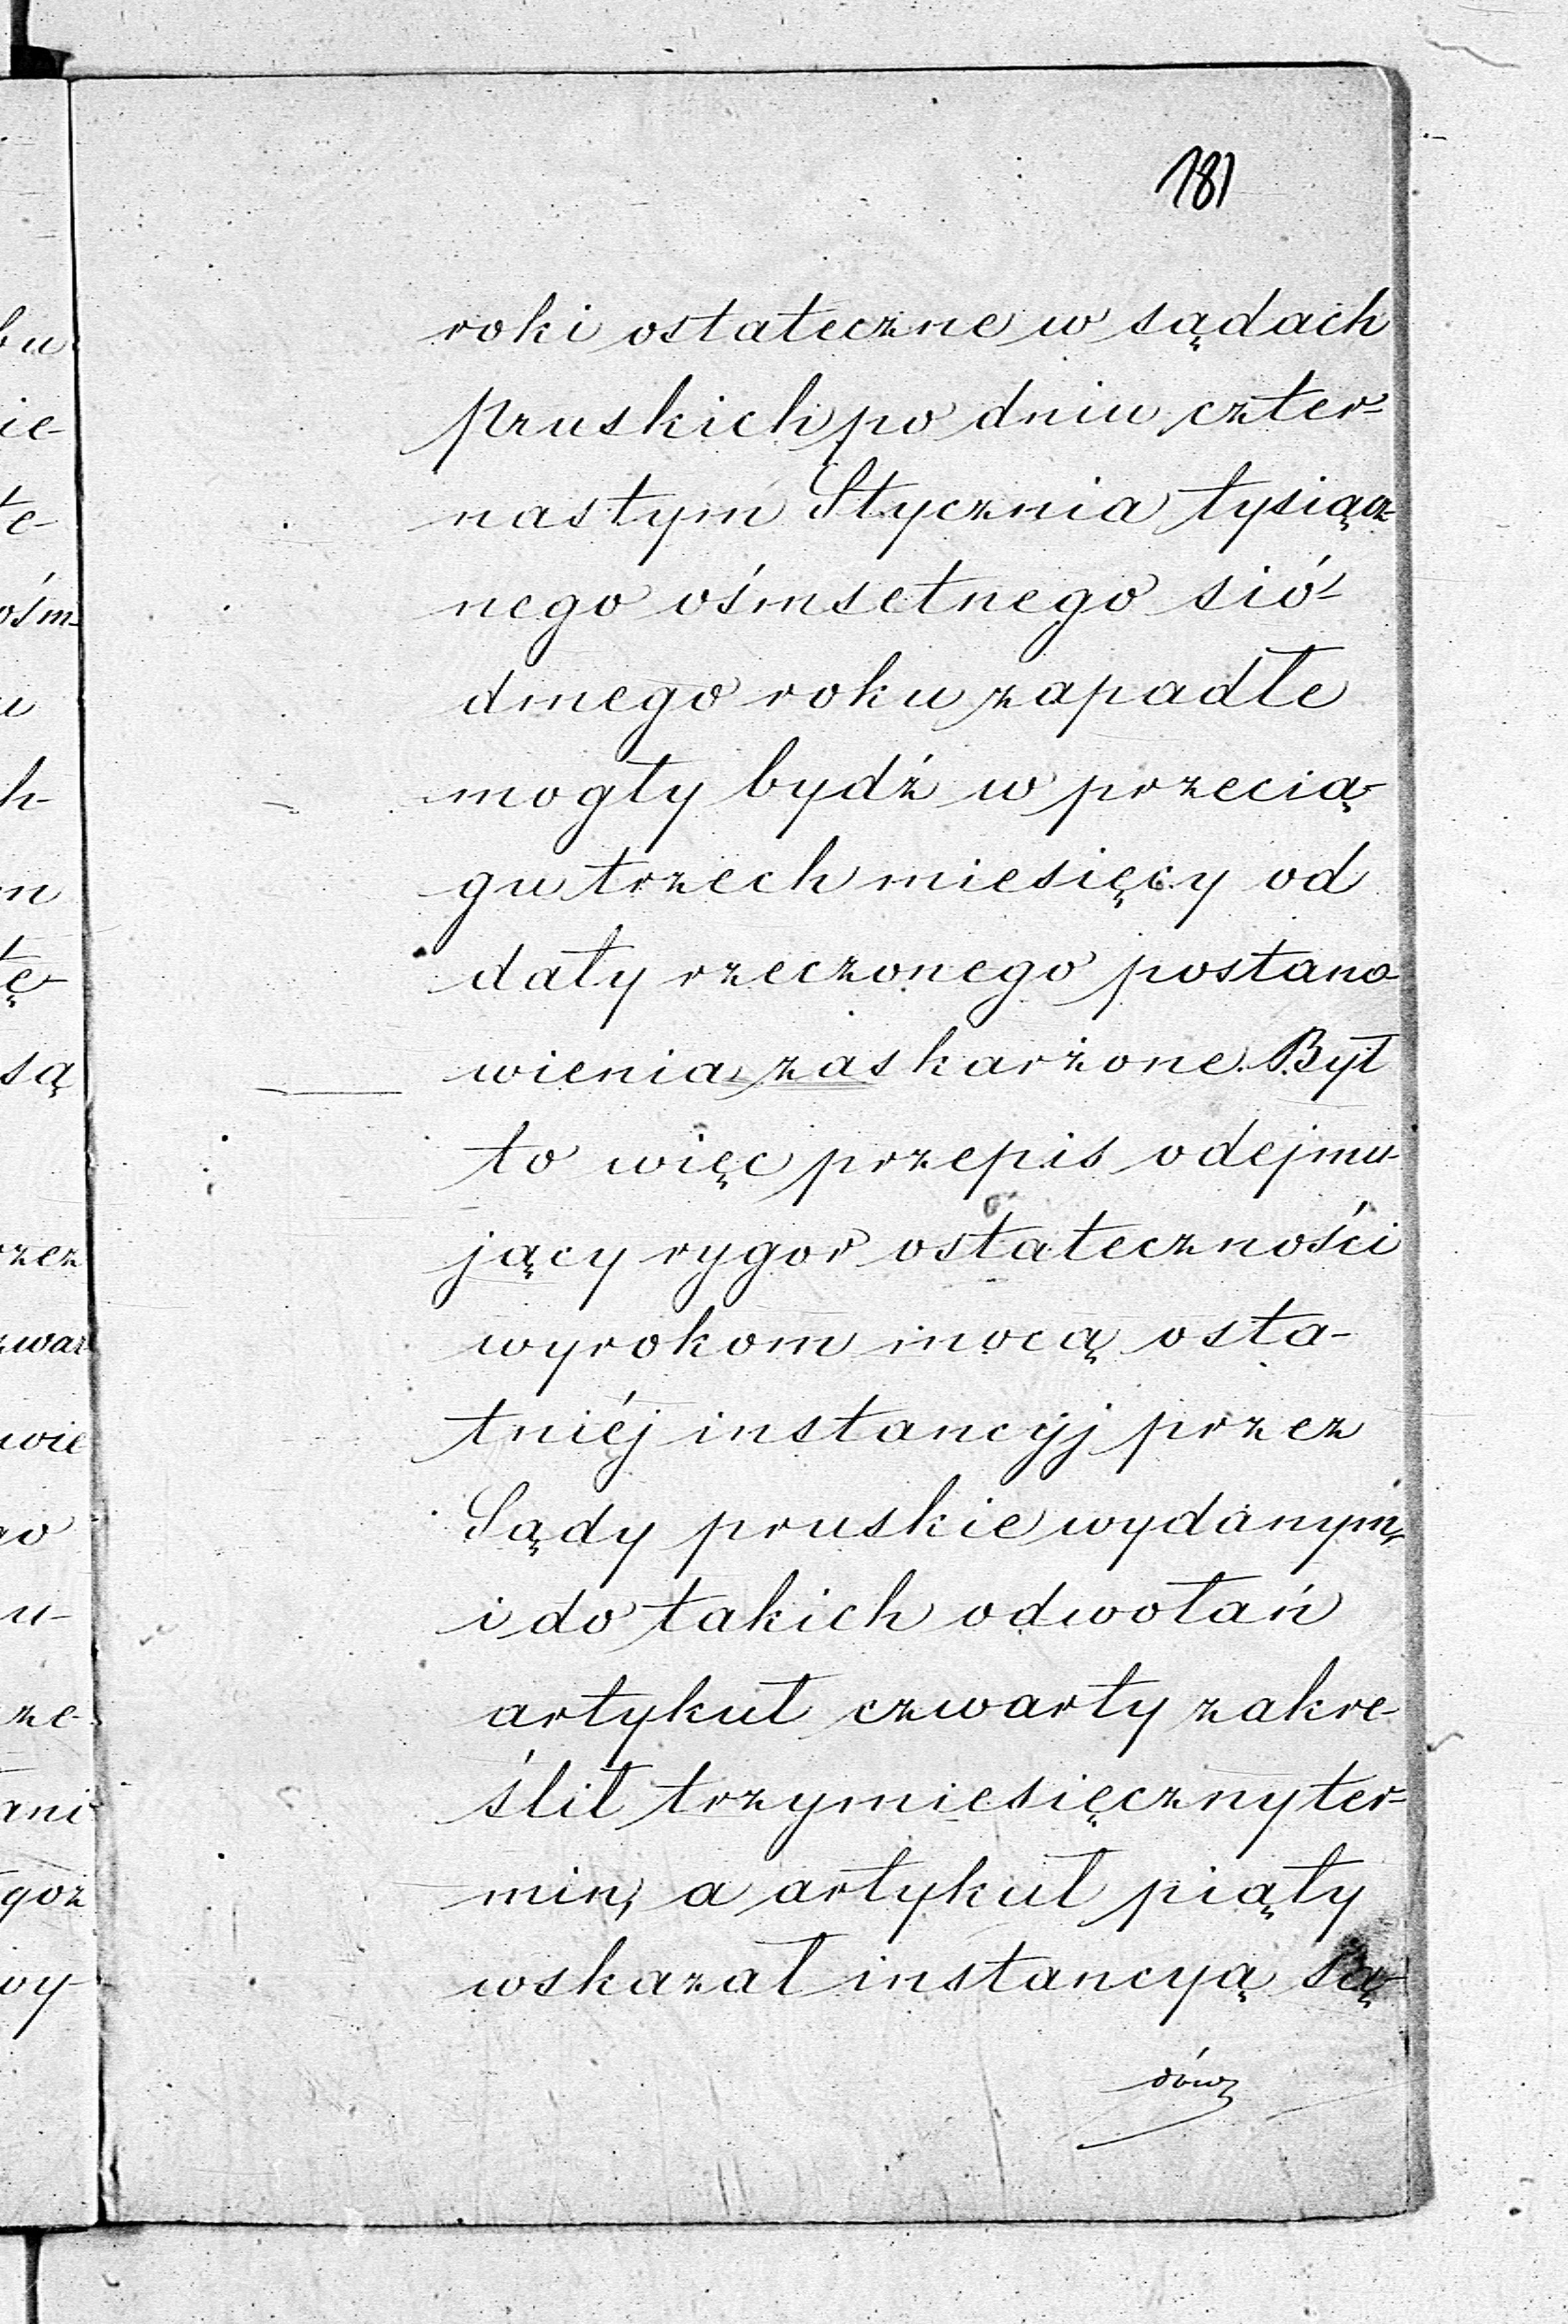 181
roki ostateczne w sądach
pruskich po dniu czter-
nastym Stycznia tysiącz-
nego ośmsetnego sió-
dmego roku zapadłe
mogły bydź w przecią-
gu trzech miesięcy od
daty rzeczonego postano-
wienia zaskarżone. Był
to więc przepis odejmu-
jący rygor ostateczności
wyrokom mocą osta-
tniéj instancyj przez
Sądy pruskie wydanym,
i do takich odwołań
artykuł czwarty zakre-
ślił trzymiesięczny ter-
min, a artykuł piąty
wskazał instancyą Są-
dów